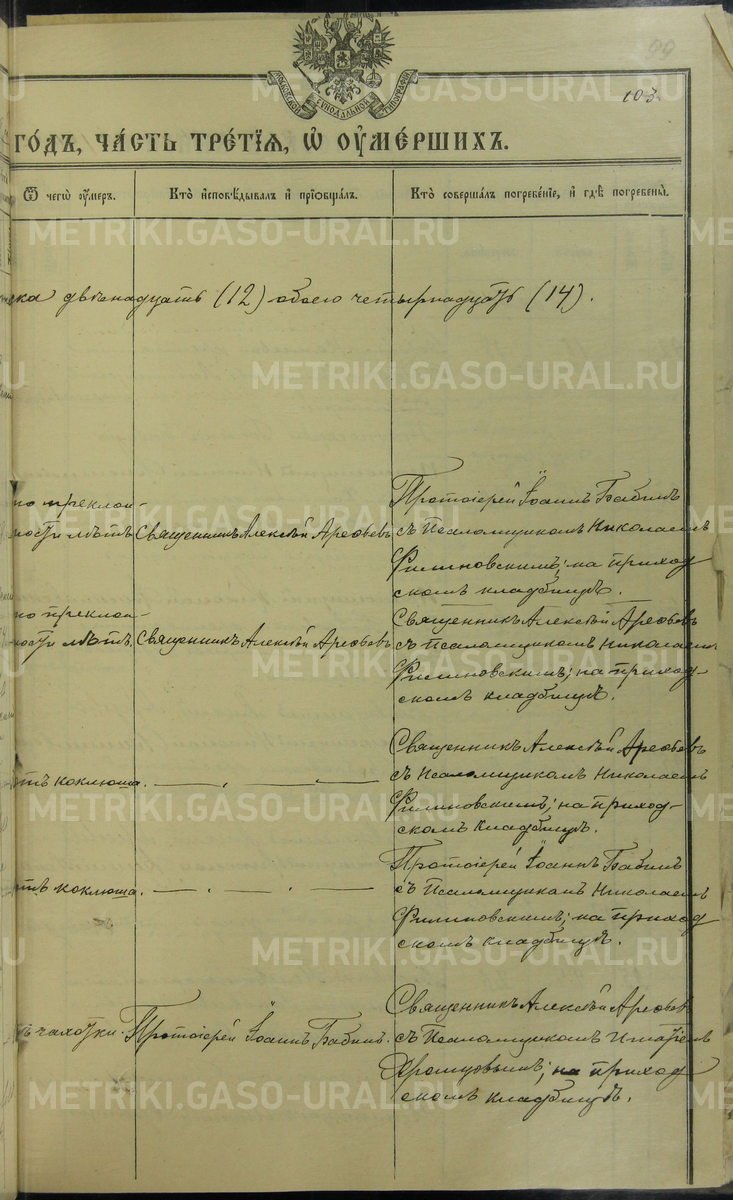 99
103.
МОСКОВСКОЙ СѴНОДАЛЬНОЙ ТИПОГРАФІИ
ГО́ДЪ, ЧА́СТЬ ТРЕ́ТІЯ, Ѡ҆ ОУ҆МЕ́РШИХЪ.
Ѿ чегѡ̀ оу҆́меръ.
Кто̀ и҆сповѣ́дывалъ и҆ прїѡбща́лъ.
Кто̀ соверша́лъ погребе́нїе, и҆ гдѣ̀ погребены̀.
ска двѣнадцать (12) обоего четырнадцать (14).
по преклон-
ности лѣтъ
Священникъ Алексѣй Арефьевъ
Протоіерей Іоаннъ Бабинъ
съ Псаломщикомъ Николаемъ
Филиновскимъ; на приход
скомъ кладбищѣ.
по преклон-
ности лѣтъ.
Священникъ Алексѣй Арефьевъ
Священникъ Алексѣй Арефьевъ
съ Псаломщикомъ Николаемъ
Филиновскимъ; на приход-
скомъ кладбищѣ.
отъ коклюша.
Священникъ Алексѣй Арефьевъ
съ Псаломщикомъ Николаемъ
Филиновскимъ; на приход-
скомъ кладбищѣ.
отъ коклюша.
Протоіерей Іоаннъ Бабинъ
съ Псаломщикомъ Николаемъ
Филиновскимъ; на приход
скомъ кладбищѣ.
чахотки.
Протоіерей Іоаннъ Бабинъ.
Священникъ Алексѣй Арефьевъ
съ Псаломщикомъ
Хромцовымъ; на приход
скомъ кладбищѣ.
METRIKI.GASO-URAL.RU